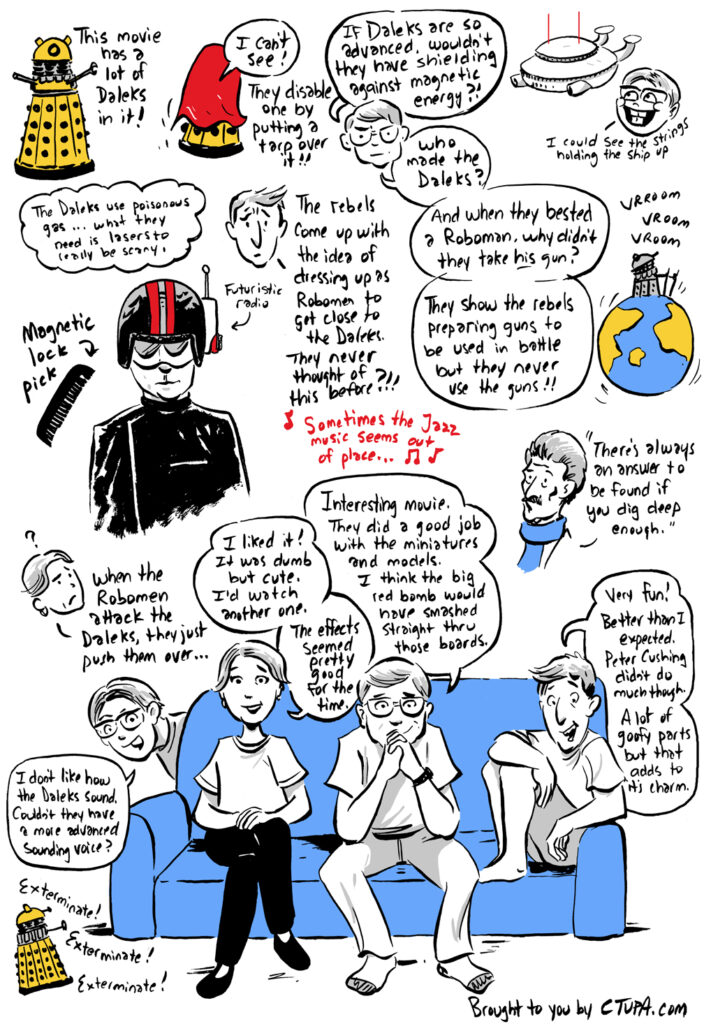 This movie
has a
lot of
Daleks
in it!
I can't
see!
They disable
one by
putting a
tarp over
it!!
If Daleks are so
advanced, wouldn't
they have shielding
against magnetic
energy?!
who
made the
Daleks?
I could see the strings
holding the ship up
The Daleks use poisonous
gas... what they
need is lasers to
really be scary.
The rebels
come up with
the idea of
dressing up as
Robomen to
get close to
the Daleks.
They never
thought of
this before?!!
And when they bested
a Roboman, why didn't
they take his gun?
They show the rebels
preparing guns to
be used in battle
but they never
use the guns!!
VRROOM
VROOM
VROOM
Futuristic
radio
Magnetic
lock
pick
Sometimes the Jazz
music seems out
of place...
"There's always
an answer to
be found if
you dig deep
enough."
?
When the
Robomen
attack the
Daleks, they just
push them over...
I liked it!
It was dumb
but cute.
I'd watch
another one.
The effects
seemed
pretty
good
for the
time.
Interesting movie.
They did a good job
with the miniatures
and models.
I think the big
red bomb would
have smashed
straight thru
those boards.
Very fun!
Better than I
expected.
Peter Cushing
didn't do
much though.
A lot of
goofy parts
but that
adds to
it's charm.
I don't like how
the Daleks sound.
Couldn't they have
a more advanced
sounding voice?
Exterminate!
Exterminate!
Exterminate!
Brought to you by CTUPA.com